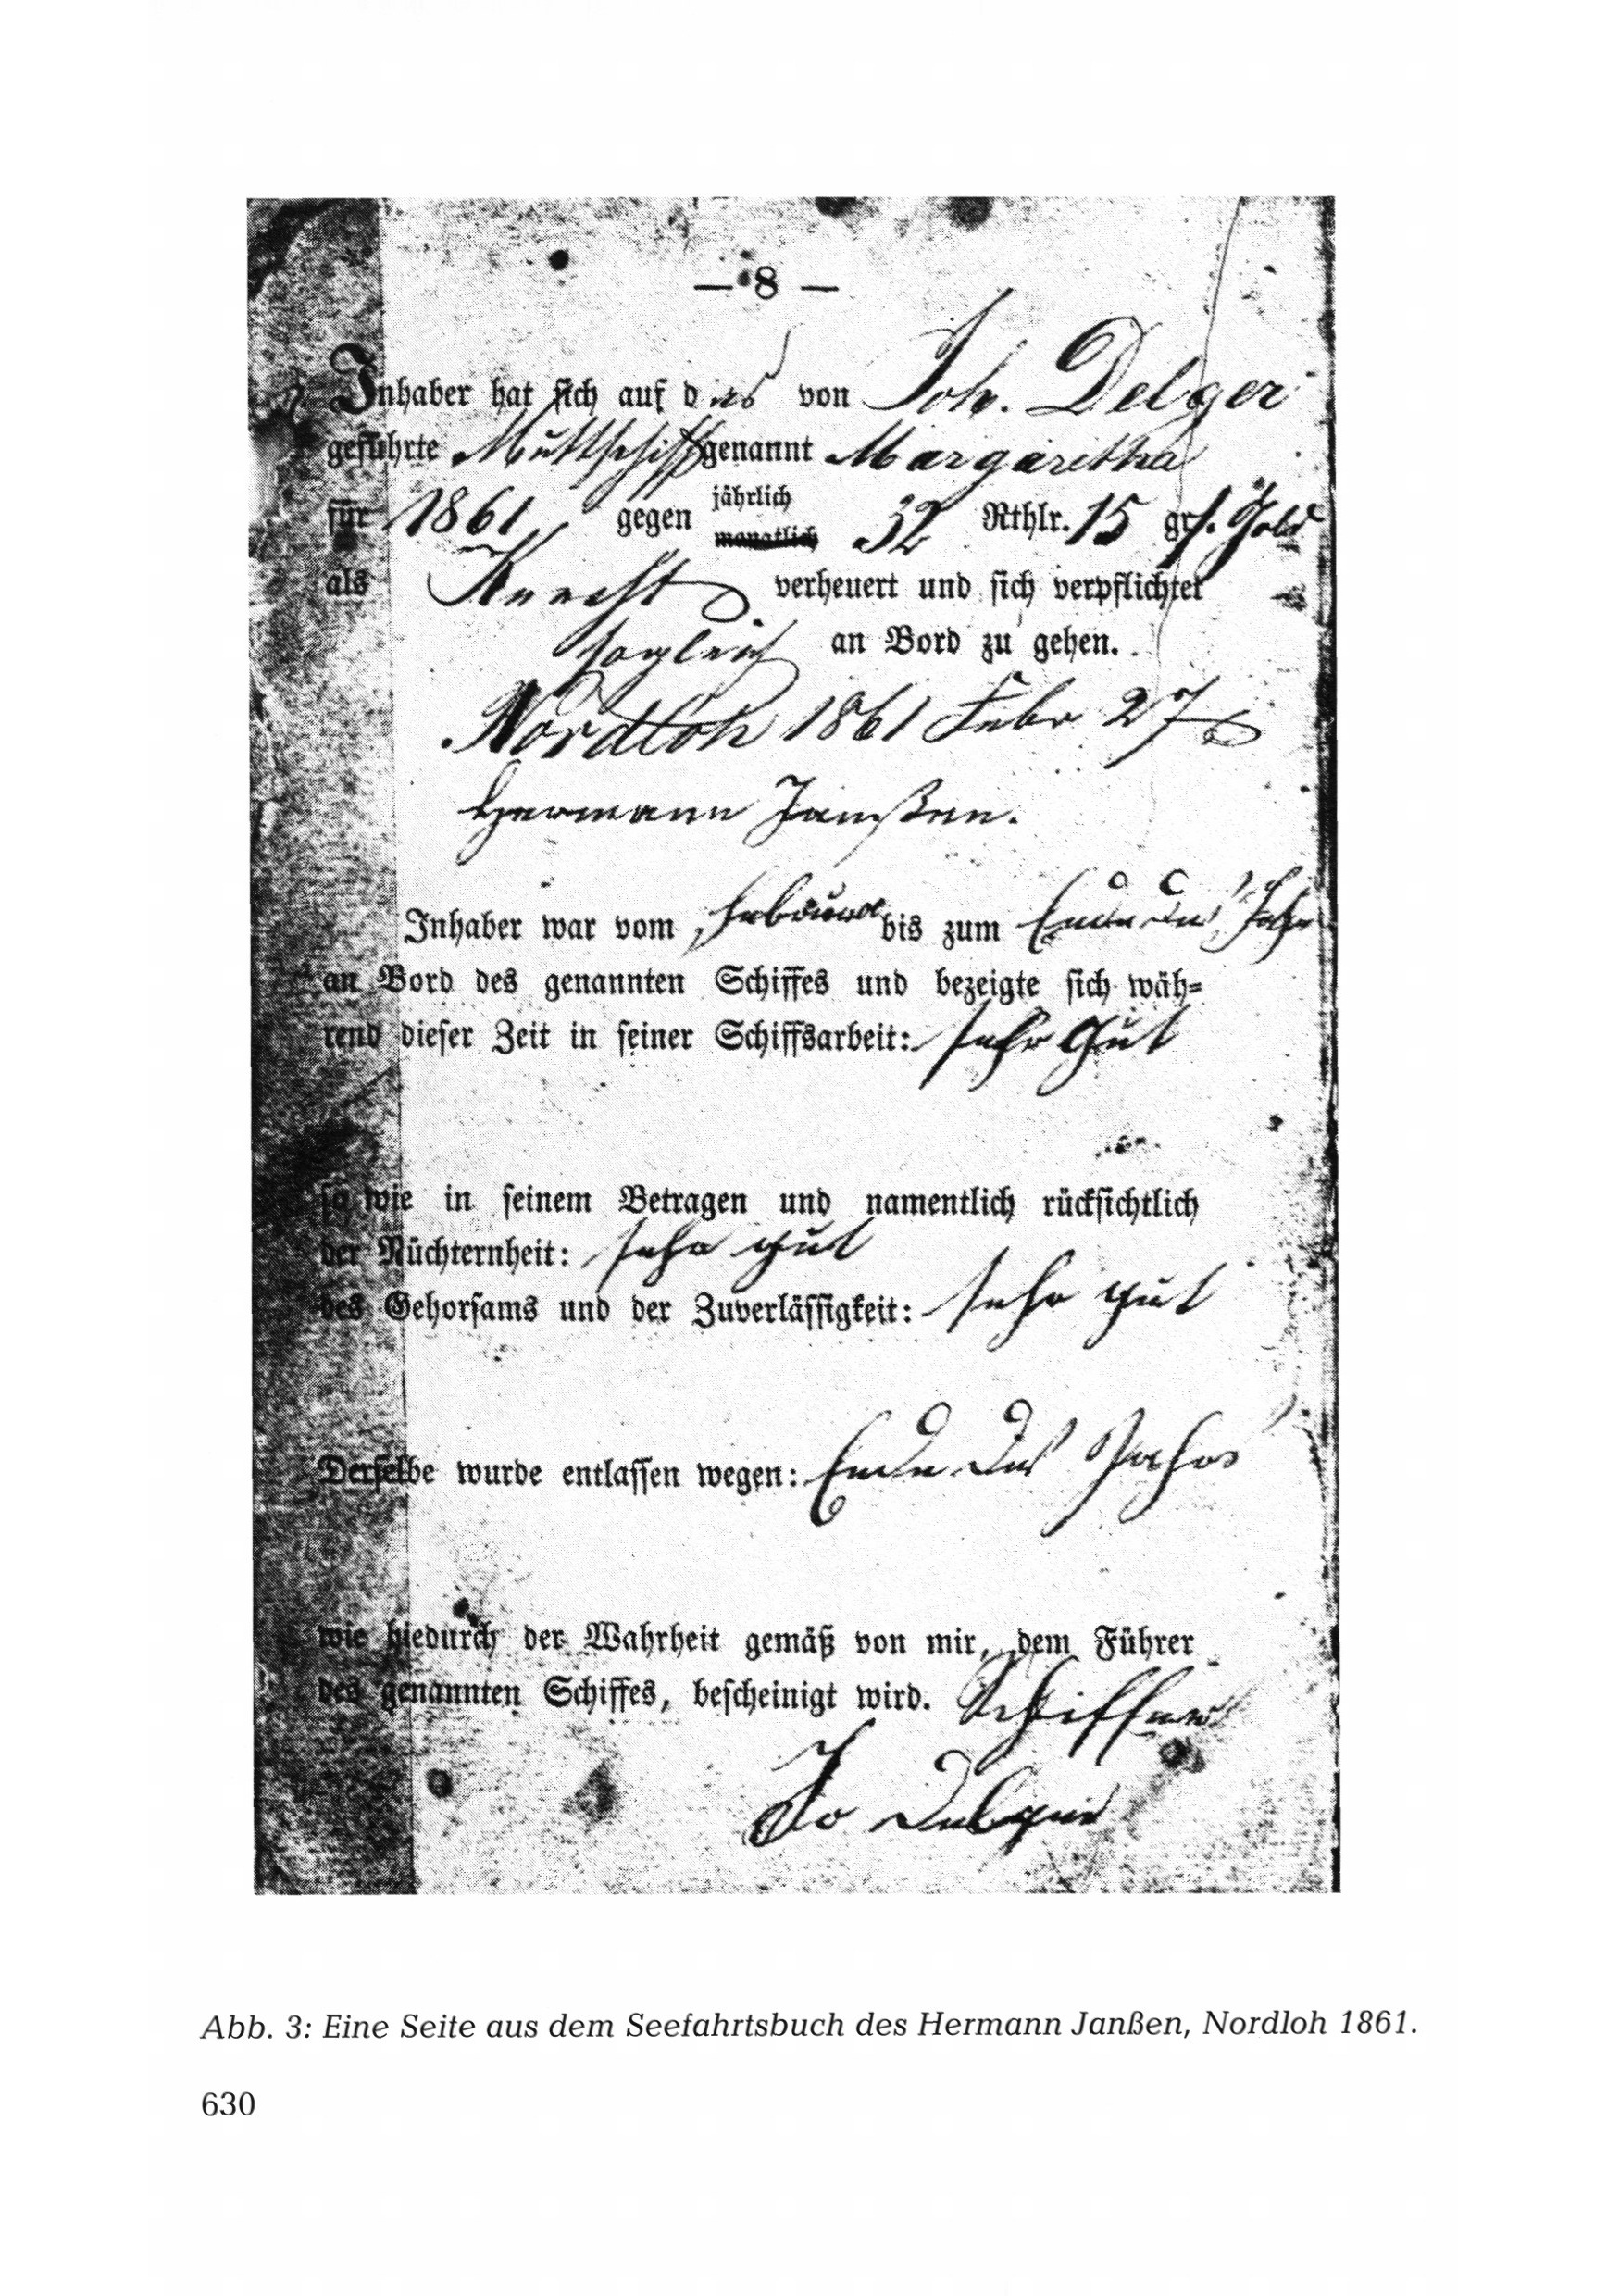 — 8 —
Inhaber hat sich auf das von Joh. Delger
geführte Muttschiff genannt Margaretha
für 1861 gegen jährlich monatlich 32 Rthlr. 15 gr. Gold
als Knecht verheuert und sich verpflichtet
sogleich an Bord zu gehen.
Nordloh 1861 Febr 27
Hermann Janßen.
Inhaber war vom Februar bis zum Ende des Jahr
an Bord des genannten Schiffes und bezeigte sich wäh=
rend dieser Zeit in seiner Schiffsarbeit: sehr gut
so wie in seinem Betragen und namentlich rücksichtlich
der Nüchternheit: sehr gut
des Gehorsams und der Zuverlässigkeit: sehr gut
Derselbe wurde entlassen wegen: Ende des Jahrs
wie hiedurch der Wahrheit gemäß von mir, dem Führer
des genannten Schiffes, bescheinigt wird. Schiffer
Jo Delger
Abb. 3: Eine Seite aus dem Seefahrtsbuch des Hermann Janßen, Nordloh 1861.
630